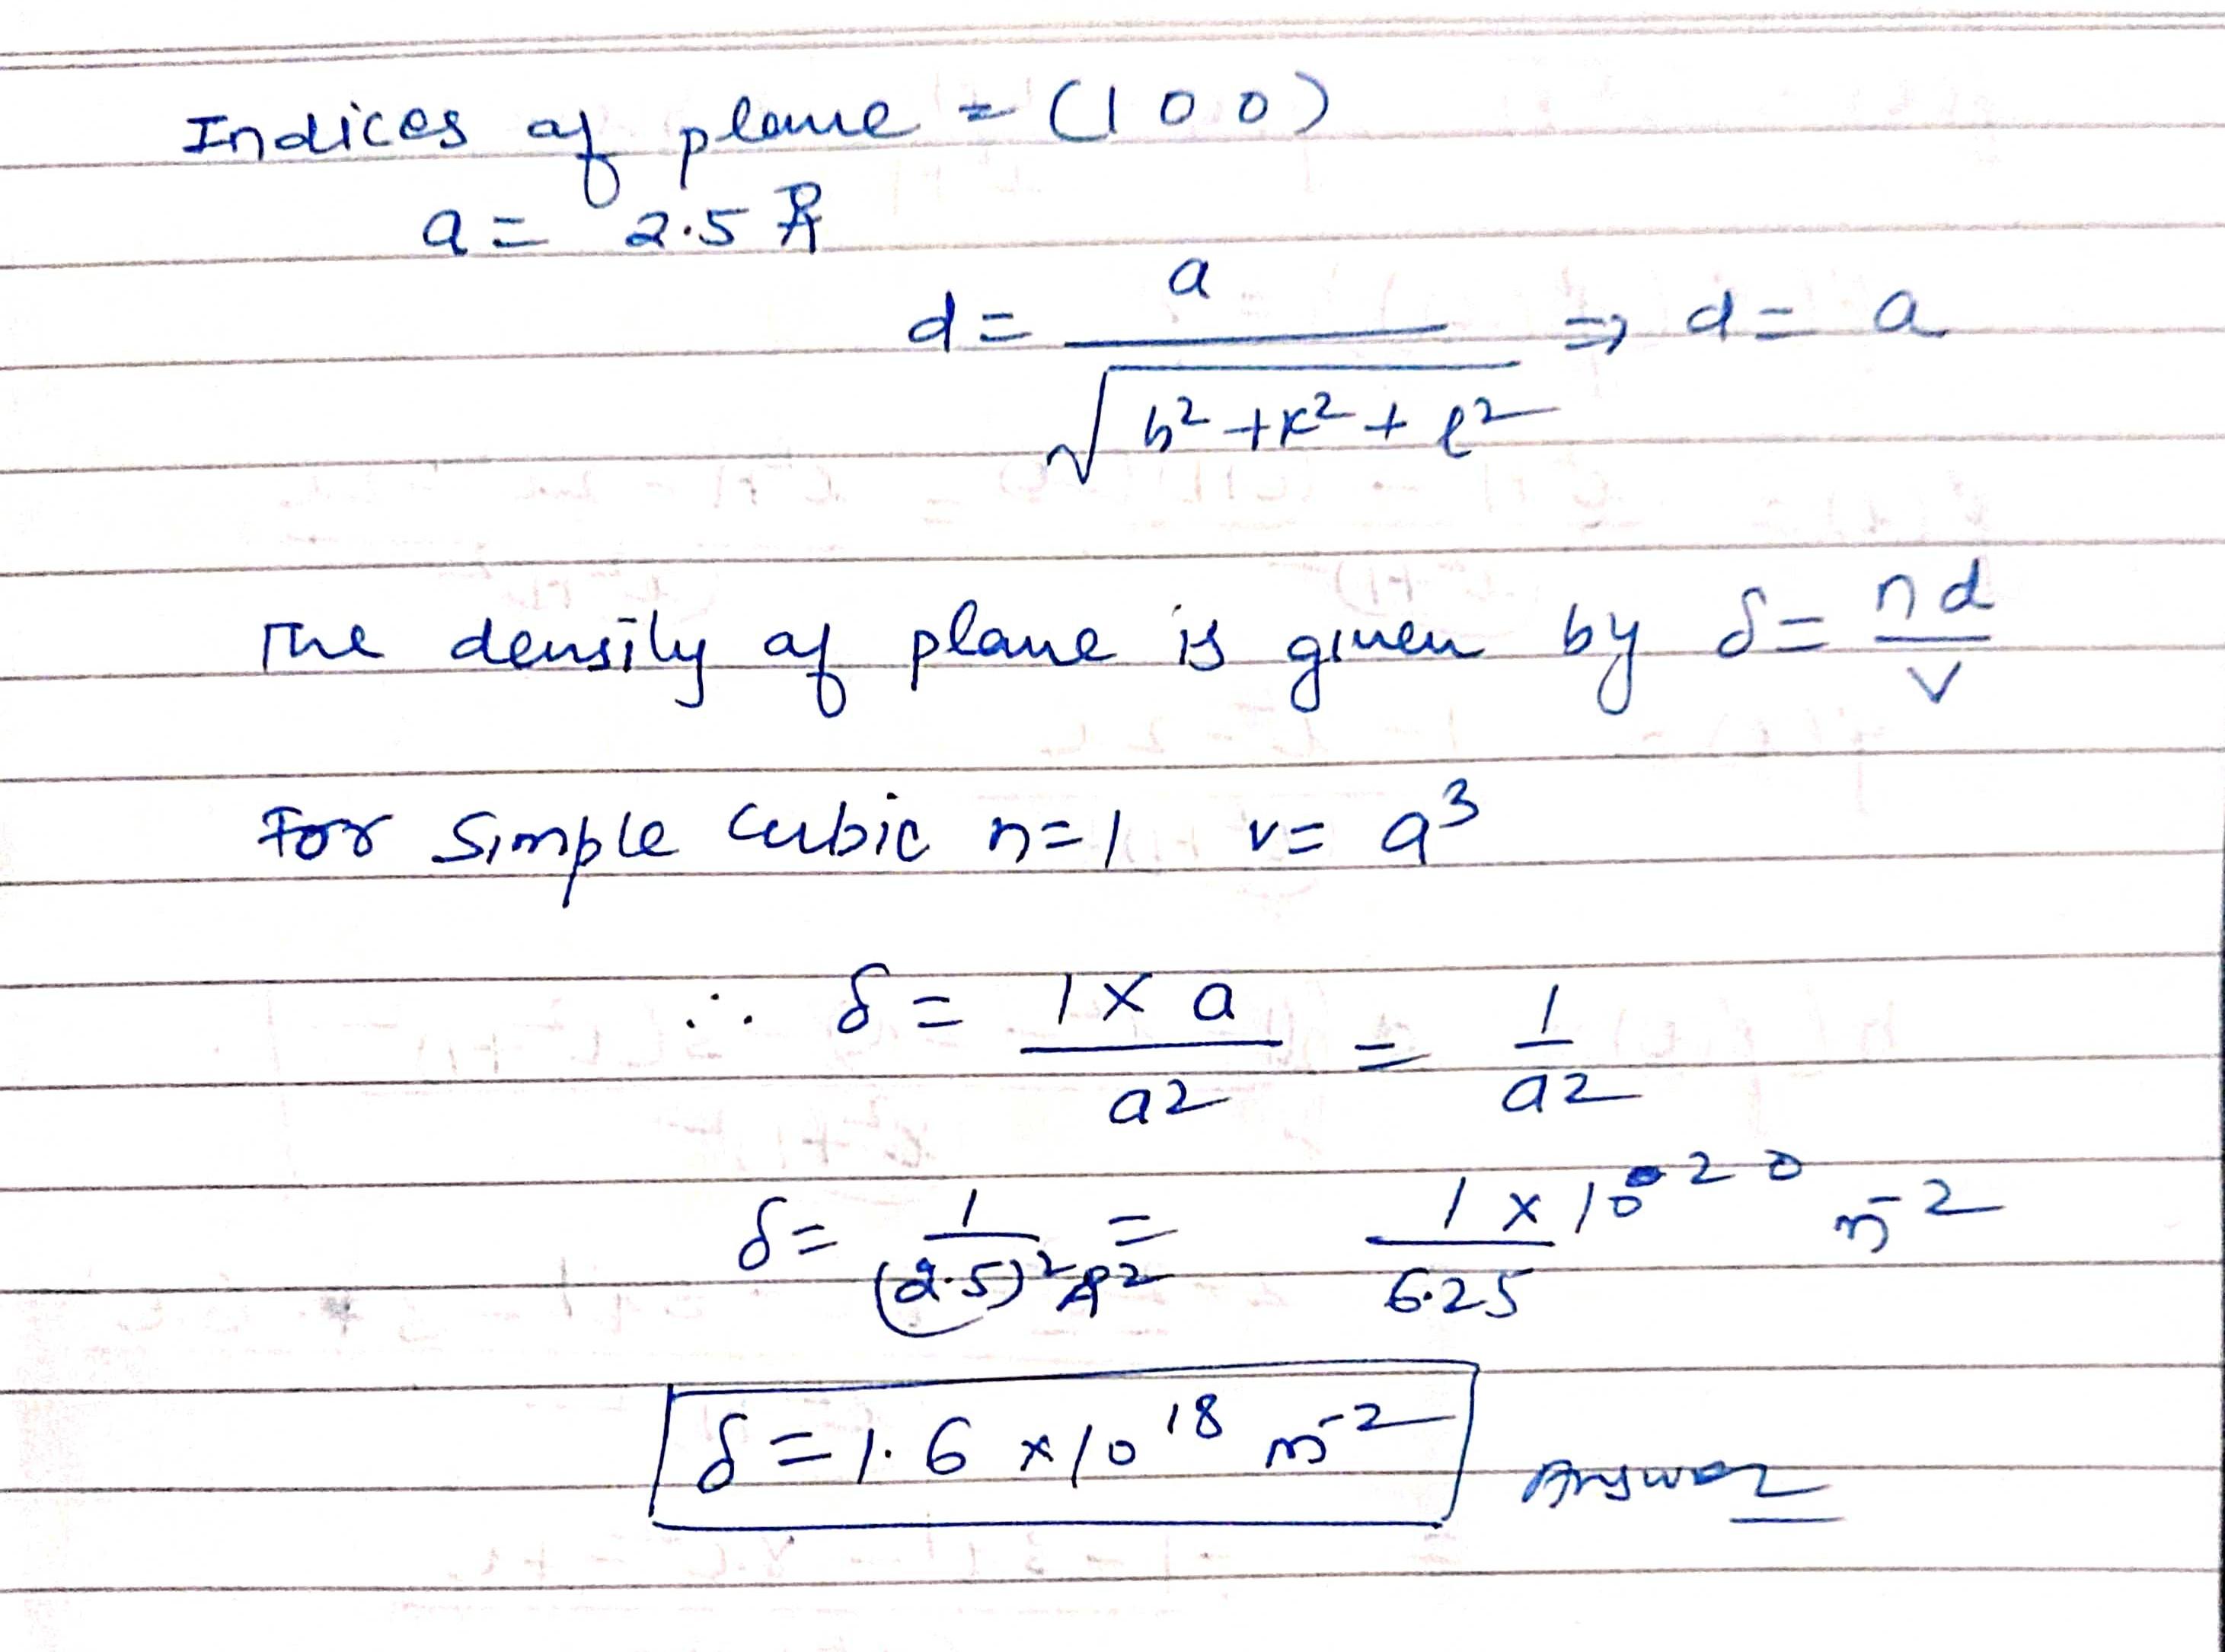 Indices of plane = (1 0 0)
a = 2.5 Å
d = a / √(h² + k² + l²) ⇒ d = a
The density of plane is given by δ = nd / V
For Simple Cubic n=1 v= a³
∴ δ = 1 x a / a2 = 1 / a2
δ = 1 / (2.5)² Å² = 1 x 10²⁰ / 6.25 m⁻²
δ = 1.6 x 10¹⁸ m⁻² Answer